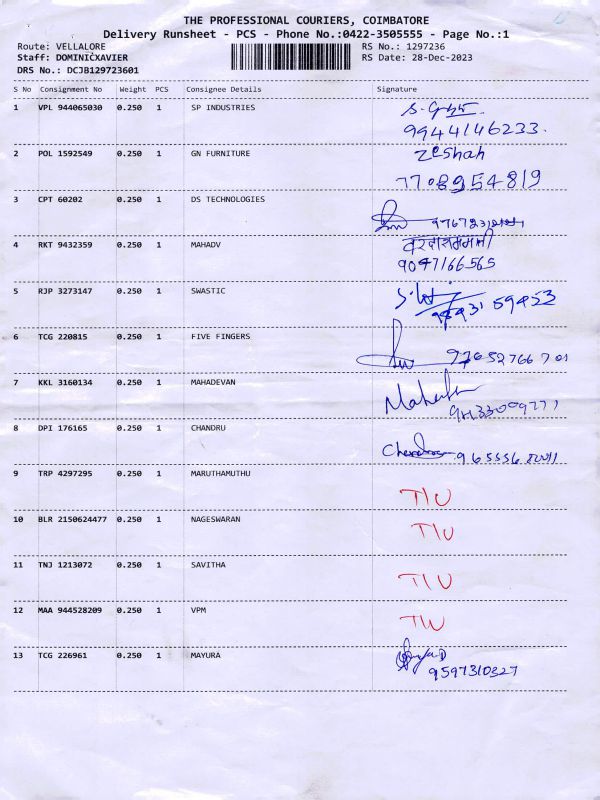 THE PROFESSIONAL COURIERS, COIMBATORE
Delivery Runsheet - PCS - Phone No.:0422-3505555 - Page No.:1
Route: VELLALORE RS No.: 1297236
Staff: DOMINICXAVIER RS Date: 28-Dec-2023
DRS No.: DCJB129723601
S No Consignment No Weight PCS Consignee Details Signature
1 VPL 944065030 0.250 1 SP INDUSTRIES
9944146233.
2 POL 1592549 0.250 1 GN FURNITURE Zeshah
7708954819
3 CPT 60202 0.250 1 DS TECHNOLOGIES
4 RKT 9432359 0.250 1 MAHADV
9047166565
5 RJP 3273147 0.250 1 SWASTIC
59453
6 TCG 220815 0.250 1 FIVE FINGERS
7 KKL 3160134 0.250 1 MAHADEVAN
8 DPI 176165 0.250 1 CHANDRU
9 TRP 4297295 0.250 1 MARUTHAMUTHU
10 BLR 2150624477 0.250 1 NAGESWARAN
11 TNJ 1213072 0.250 1 SAVITHA
12 MAA 944528209 0.250 1 VPM
13 TCG 226961 0.250 1 MAYURA
9597310327